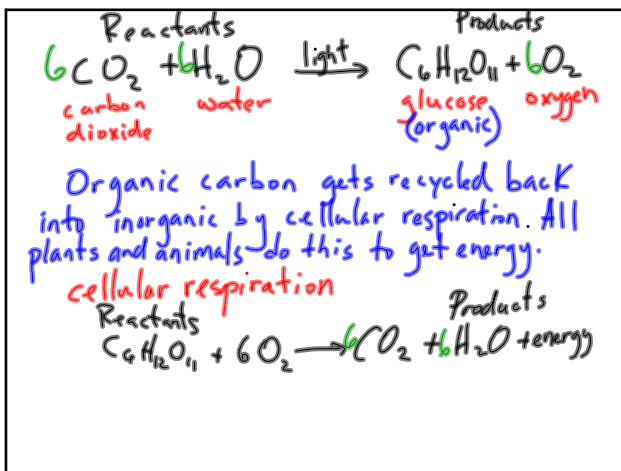 Reactants Products
6CO₂ + 6H₂O light → C₆H₁₂O₁₁ + 6O₂
carbon dioxide water glucose (organic) oxygen
Organic carbon gets recycled back
into inorganic by cellular respiration. All
plants and animals do this to get energy.
cellular respiration
Reactants Products
C₆H₁₂O₁₁ + 6O₂ → 6CO₂ + 6H₂O + energy